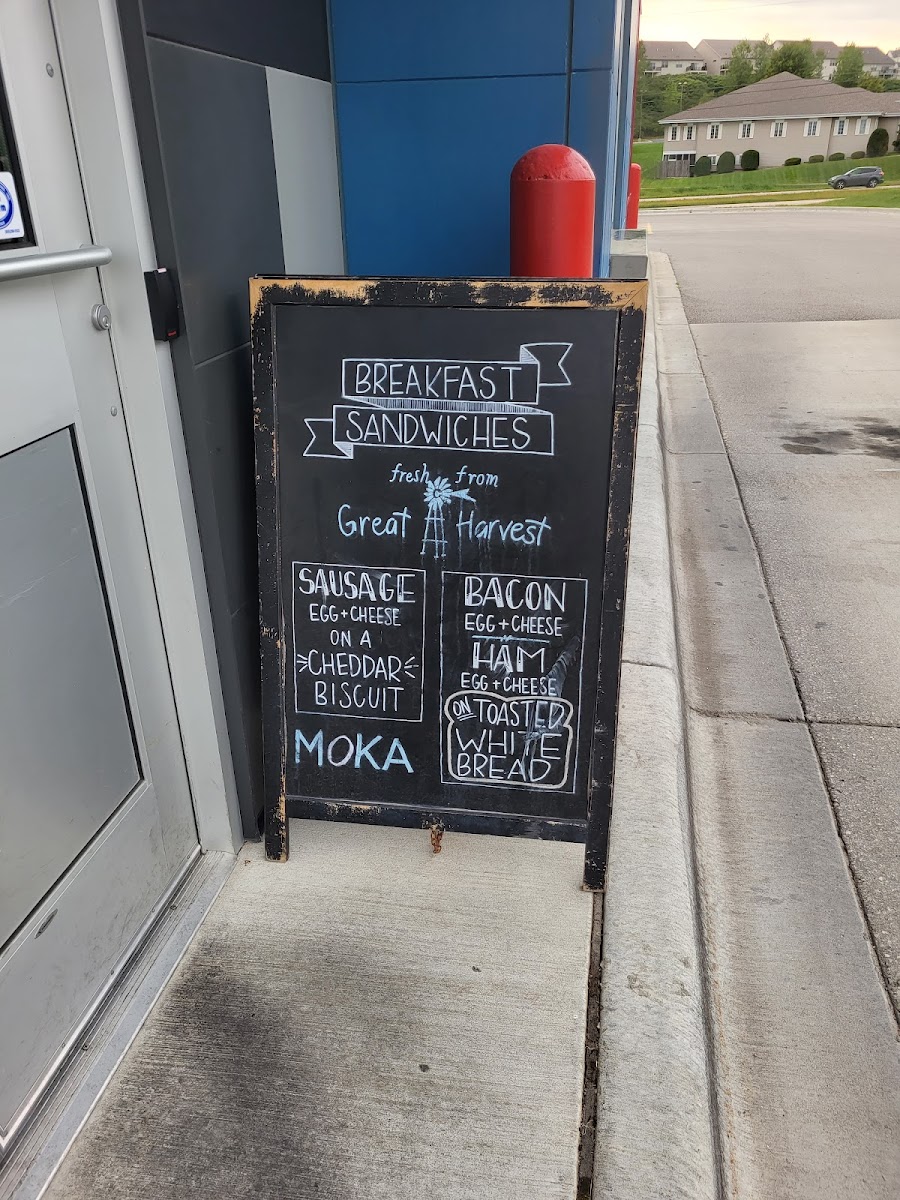 BREAKFAST
SANDWICHES
fresh from
Great Harvest
SAUSAGE
EGG + CHEESE
ON A
CHEDDAR
BISCUIT
MOKA
BACON
EGG + CHEESE
HAM
EGG + CHEESE
ON TOASTED
WHITE
BREAD